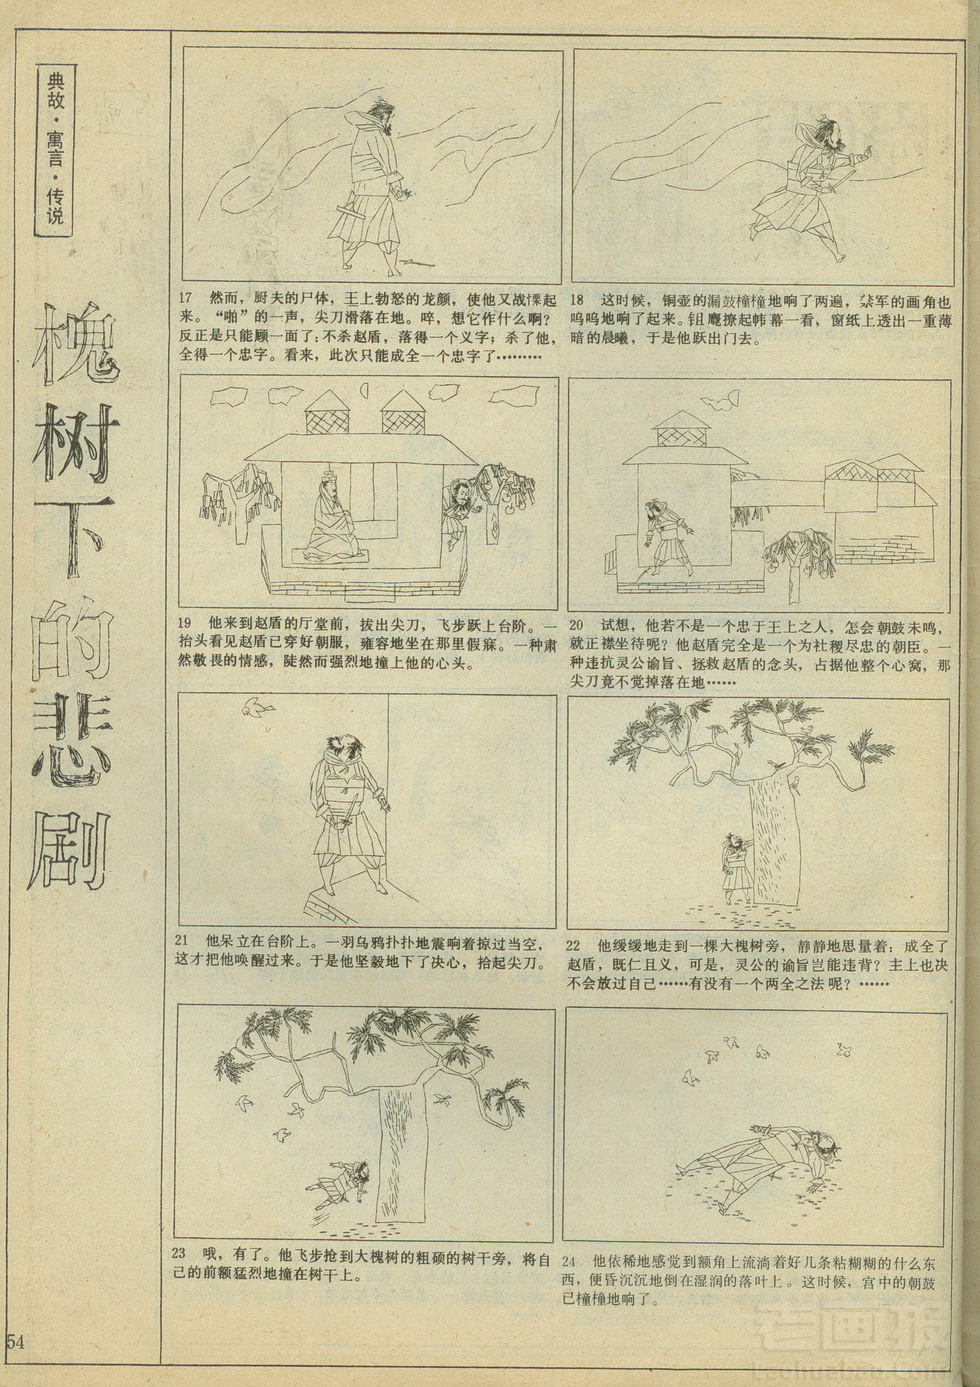 典故·寓言·传说
槐树下的悲剧
17 然而，厨夫的尸体，王上勃怒的龙颜，使他又战慄起
来。“啪”的一声，尖刀滑落在地。啐，想它作什么啊？
反正是只能顾一面了：不杀赵盾，落得一个义字；杀了他，
全得一个忠字。看来，此次只能成全一个忠字了………
18 这时候，铜壶的漏鼓橦橦地响了两遍，禁军的画角也
呜呜地响了起来。钼麑撩起帏幕一看，窗纸上透出一重薄
暗的晨曦，于是他跃出门去。
19 他来到赵盾的厅堂前，拔出尖刀，飞步跃上台阶。一
抬头看见赵盾已穿好朝服，雍容地坐在那里假寐。一种肃
然敬畏的情感，陡然而强烈地撞上他的心头。
20 试想，他若不是一个忠于王上之人，怎会朝鼓未鸣，
就正襟坐待呢？他赵盾完全是一个为社稷尽忠的朝臣。一
种违抗灵公谕旨、拯救赵盾的念头，占据他整个心窝，那
尖刀竟不觉掉落在地……
21 他呆立在台阶上。一羽乌鸦扑扑地震响着掠过当空，
这才把他唤醒过来。于是他坚毅地下了决心，拾起尖刀。
22 他缓缓地走到一棵大槐树旁，静静地思量着：成全了
赵盾，既仁且义，可是，灵公的谕旨岂能违背？主上也决
不会放过自己……有没有一个两全之法呢？……
23 哦，有了。他飞步抢到大槐树的粗硕的树干旁，将自
己的前额猛烈地撞在树干上。
24 他依稀地感觉到额角上流淌着好几条粘糊糊的什么东
西，便昏沉沉地倒在湿润的落叶上。这时候，宫中的朝鼓
已橦橦地响了。
54
老画报
Laohuabao.Com